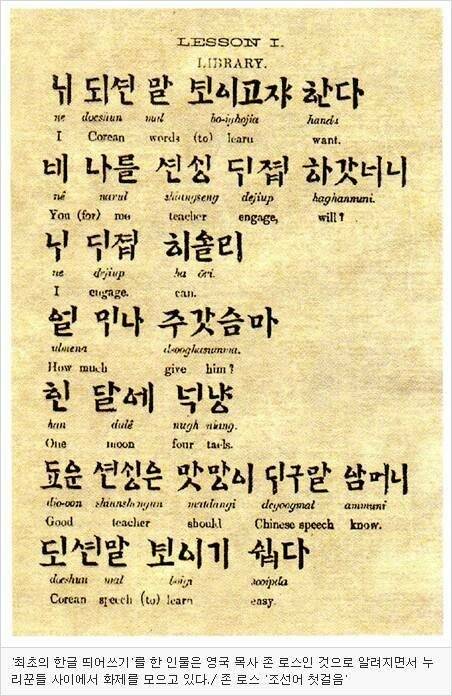 LESSON I.
LIBRARY.
뉘 되션 말 보이고쟈 한다
ne doeshun mal bo-ighojia handa
I Corean words (to) learn want.
나를 션싱 뒤졉 하갓너니
narul dejiup
You (for) me teacher engage, will?
뉘 뒤졉 히올리
ne dejiup
I engage. can.
얼 미나 주갓슴마
ulmena
How much give him?
힌 달에 넉냥
han dalê nugh niang.
One moon four taels.
됴운 션싱은 맛망이 뒤구말 암머니
dio-oon ammuni
Good teacher should Chinese speech know.
되션말 보이기 쉽다
doeshun mal boigi
Corean speech (to) learn easy.
'최초의 한글 띄어쓰기'를 한 인물은 영국 목사 존 로스인 것으로 알려지면서 누
리꾼들 사이에서 화제를 모으고 있다./ 존 로스 '조선어 첫걸음'